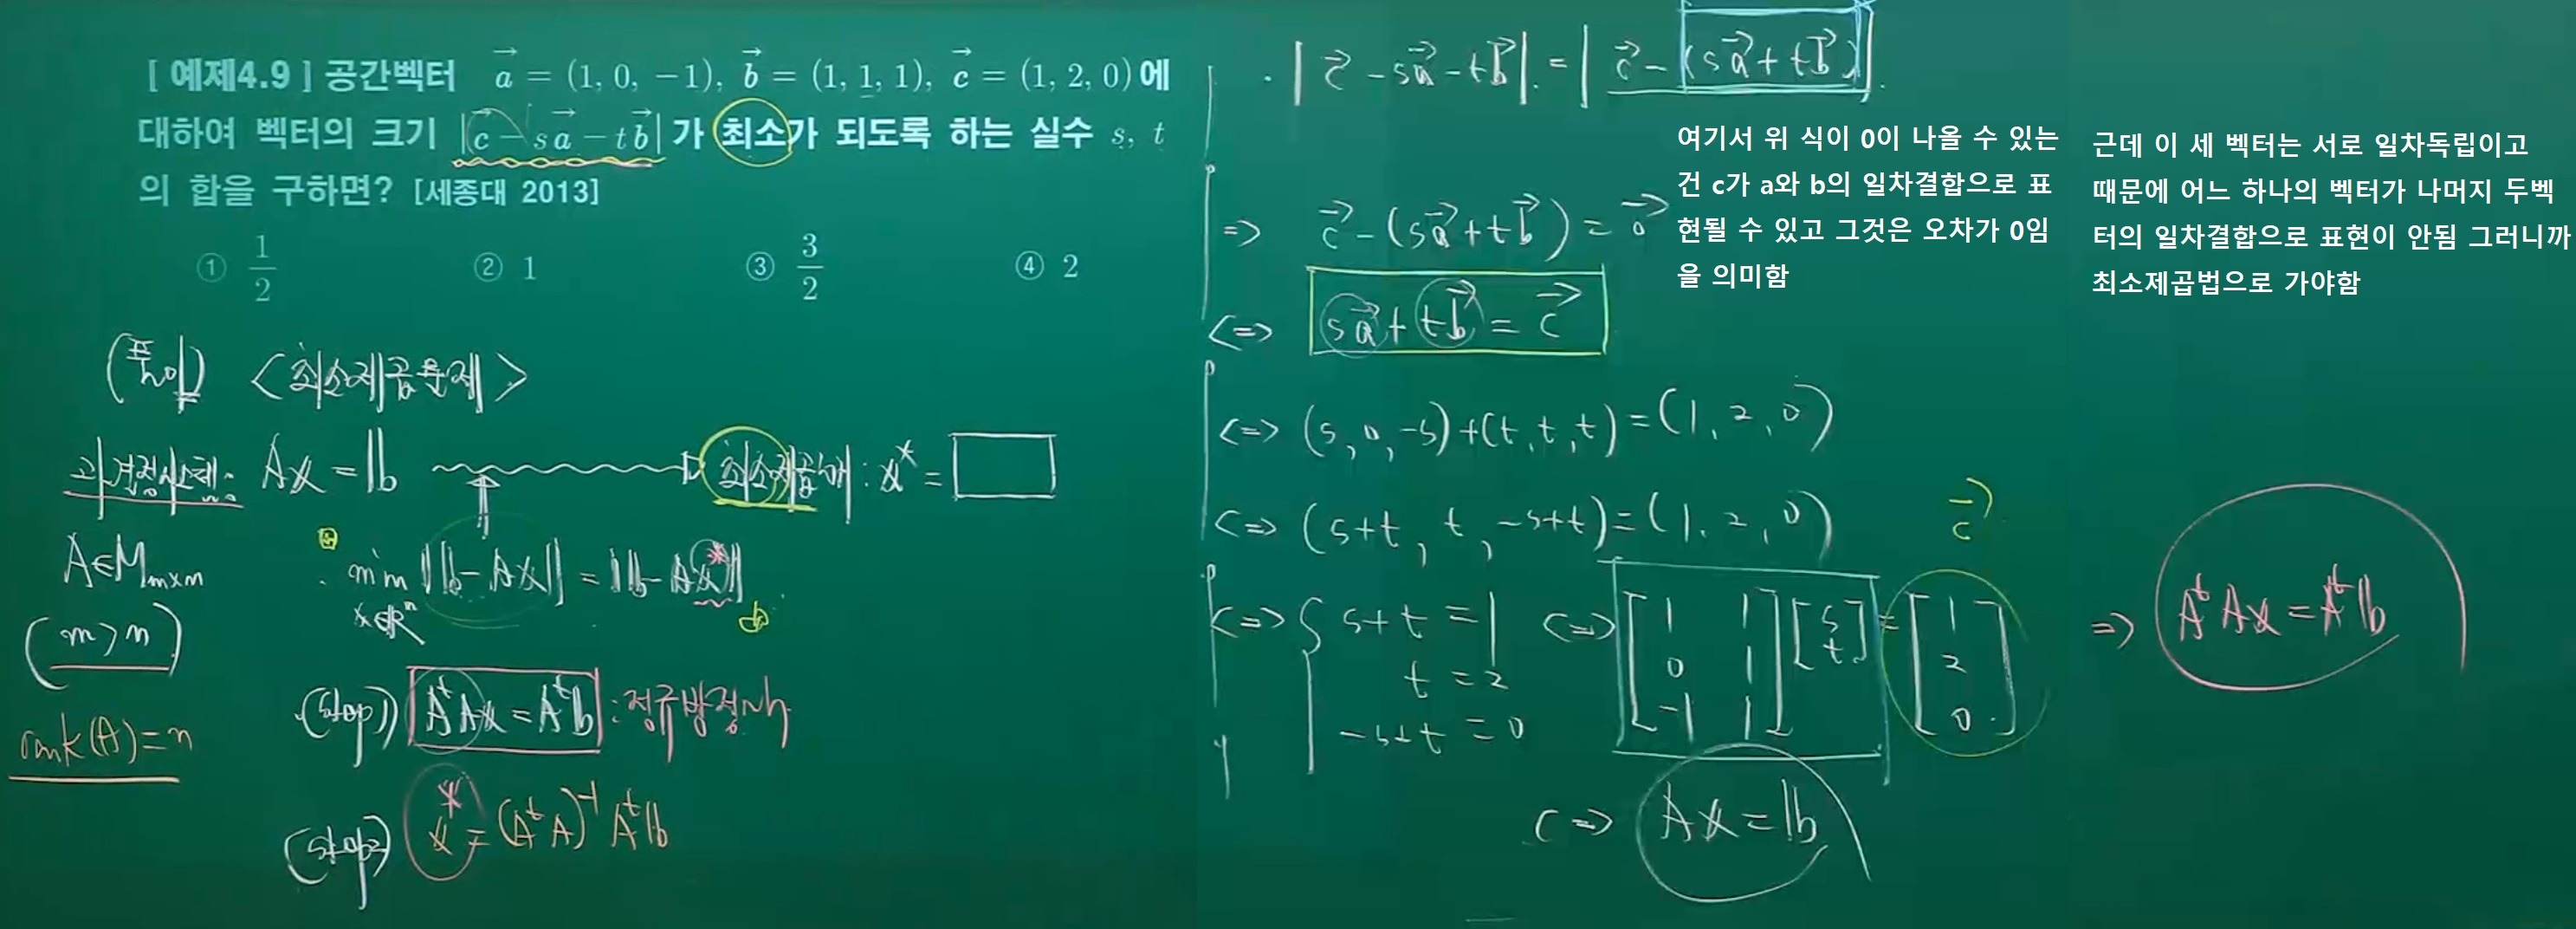 [ 예제4.9 ] 공간벡터 a⃗ = (1, 0, −1), b⃗ = (1, 1, 1), c⃗ = (1, 2, 0)에
대하여 벡터의 크기 |c⃗ − sa⃗ − tb⃗| 가 최소가 되도록 하는 실수 s, t
의 합을 구하면? [세종대 2013]
① 1/2 ② 1 ③ 3/2 ④ 2
(풀이) <최소제곱문제>
Ax = b 최소제곱해 : x* =
A∈M m×n
(m > n)
rank(A) = n
min x∈Rⁿ ||b − Ax|| = ||b − Ax*||
(step1) AᵗAx = Aᵗb : 정규방정식
(step2) x* = (AᵗA)⁻¹Aᵗb
· |c⃗ − sa⃗ − tb⃗| = |c⃗ − (sa⃗ + tb⃗)|
=> c⃗ − (sa⃗ + tb⃗) = 0⃗
<=> sa⃗ + tb⃗ = c⃗
<=> (s, 0, −s) + (t, t, t) = (1, 2, 0)
<=> (s+t, t, −s+t) = (1, 2, 0)
<=> { s + t = 1
t = 2
−s + t = 0
<=> [1 1
0 1
−1 1] [s
t] = [1
2
0]
c⃗
<=> Ax = b
=> AᵗAx = Aᵗb
여기서 위 식이 0이 나올 수 있는
건 c가 a와 b의 일차결합으로 표
현될 수 있고 그것은 오차가 0임
을 의미함
근데 이 세 벡터는 서로 일차독립이고
때문에 어느 하나의 벡터가 나머지 두벡
터의 일차결합으로 표현이 안됨 그러니까
최소제곱법으로 가야함